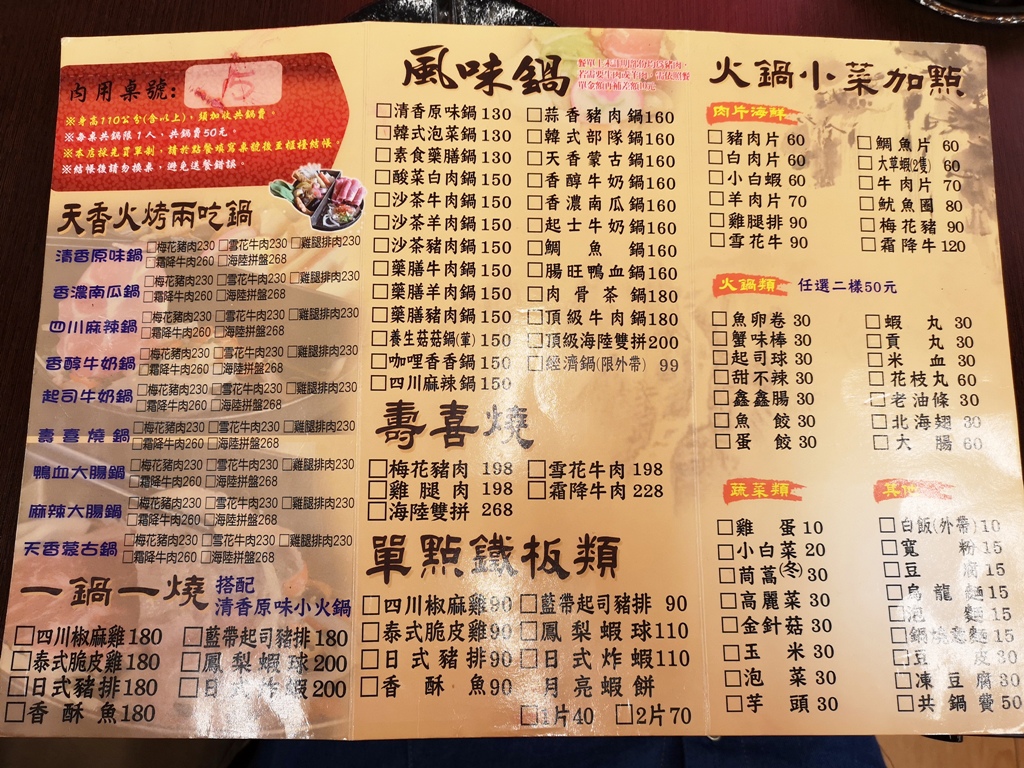 內用桌號:
※身高110公分(含以上),須加收共鍋費。
※每桌共鍋限1人,共鍋費50元。
※本店採先買單制,請於點餐填寫桌號後至櫃檯結帳。
※結帳後請勿換桌,避免送餐錯誤。
天香火烤兩吃鍋
清香原味鍋 □梅花豬肉230 □雪花牛肉230 □雞腿排肉230
□霜降牛肉260 □海陸拼盤268
香濃南瓜鍋 □梅花豬肉230 □雪花牛肉230 □雞腿排肉230
□霜降牛肉260 □海陸拼盤268
四川麻辣鍋 □梅花豬肉230 □雪花牛肉230 □雞腿排肉230
□霜降牛肉260 □海陸拼盤268
香醇牛奶鍋 □梅花豬肉230 □雪花牛肉230 □雞腿排肉230
□霜降牛肉260 □海陸拼盤268
起司牛奶鍋 □梅花豬肉230 □雪花牛肉230 □雞腿排肉230
□霜降牛肉260 □海陸拼盤268
壽喜燒鍋 □梅花豬肉230 □雪花牛肉230 □雞腿排肉230
□霜降牛肉260 □海陸拼盤268
鴨血大腸鍋 □梅花豬肉230 □雪花牛肉230 □雞腿排肉230
□霜降牛肉260 □海陸拼盤268
麻辣大腸鍋 □梅花豬肉230 □雪花牛肉230 □雞腿排肉230
□霜降牛肉260 □海陸拼盤268
天香蒙古鍋 □梅花豬肉230 □雪花牛肉230 □雞腿排肉230
□霜降牛肉260 □海陸拼盤268
一鍋一燒 搭配
清香原味小火鍋
□四川椒麻雞180 □藍帶起司豬排180
□泰式脆皮雞180 □鳳梨蝦球200
□日式豬排180 □日式炸蝦200
□香酥魚180
風味鍋
餐單上未註明部份均為豬肉,
若需要牛肉或羊肉,需依照餐
單金額再補差額10元
□清香原味鍋130 □蒜香豬肉鍋160
□韓式泡菜鍋130 □韓式部隊鍋160
□素食藥膳鍋130 □天香蒙古鍋160
□酸菜白肉鍋150 □香醇牛奶鍋160
□沙茶牛肉鍋150 □香濃南瓜鍋160
□沙茶羊肉鍋150 □起士牛奶鍋160
□沙茶豬肉鍋150 □鯛魚鍋160
□藥膳牛肉鍋150 □腸旺鴨血鍋160
□藥膳羊肉鍋150 □肉骨茶鍋180
□藥膳豬肉鍋150 □頂級牛肉鍋180
□養生菇菇鍋(葷)150 □頂級海陸雙拼200
□咖哩香香鍋150 □經濟鍋(限外帶) 99
□四川麻辣鍋150
壽喜燒
□梅花豬肉 198 □雪花牛肉 198
□雞腿肉 198 □霜降牛肉 228
□海陸雙拼 268
單點鐵板類
□四川椒麻雞90 □藍帶起司豬排 90
□泰式脆皮雞90 □鳳梨蝦球110
□日式豬排90 □日式炸蝦110
□香酥魚90 月亮蝦餅
□1片40 □2片70
火鍋小菜加點
肉片海鮮
□豬肉片 60 □鯛魚片 60
□白肉片 60 □大草蝦(2隻) 60
□小白蝦 60 □牛肉片 70
□羊肉片 70 □魷魚圈 80
□雞腿排 90 □梅花豬 90
□雪花牛 90 □霜降牛120
火鍋類 任選二樣50元
□魚卵卷 30 □蝦丸 30
□蟹味棒 30 □貢丸 30
□起司球 30 □米血 30
□甜不辣 30 □花枝丸 60
□鑫鑫腸 30 □老油條 30
□魚餃 30 □北海翅 30
□蛋餃 30 □大腸 60
蔬菜類
□雞蛋10
□小白菜20
□茼蒿(冬)30
□高麗菜30
□金針菇30
□玉米30
□泡菜30
□芋頭30
其他
□白飯(外帶)10
□寬粉15
□豆腐15
□烏龍麵15
□泡麵15
□鍋燒意麵15
□豆皮30
□凍豆腐30
□共鍋費50